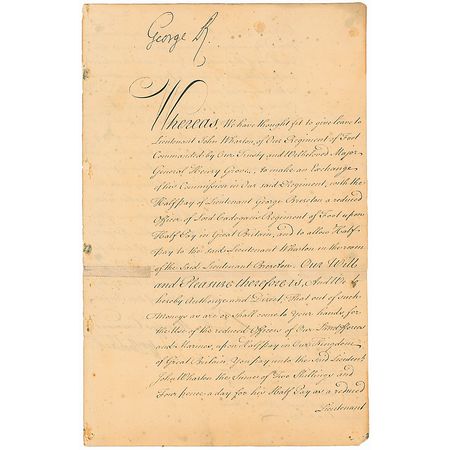 George R.
Whereas, We have thought fit to give leave to
Lieutenant John Wharton, of Our Regiment of Foot
Commanded by Our Trusty and Welbeloved Major
General Henry Grove, to make an Exchange
of his Commission in Our said Regiment, with the
Half Pay of Lieutenant George Brereton a reduced
Officer of Lord Cadogan's Regiment of Foot upon
Half Pay in Great Britain, and to allow Half-
Pay to the said Lieutenant Wharton in the room
of the Said Lieutenant Brereton. Our Will
and Pleasure therefore is, And We do
hereby Authorize and Direct, That out of such
Moneys as are or shall come to Your hands, for
the Use of the reduced Officers of Our Land Forces
and Marines, upon Half Pay in Our Kingdom
of Great Britain, You pay unto the Said Lieutent.
John Wharton the Summ of Two Shillings and
Four pence a day for his Half Pay as a reduced
Lieutenant